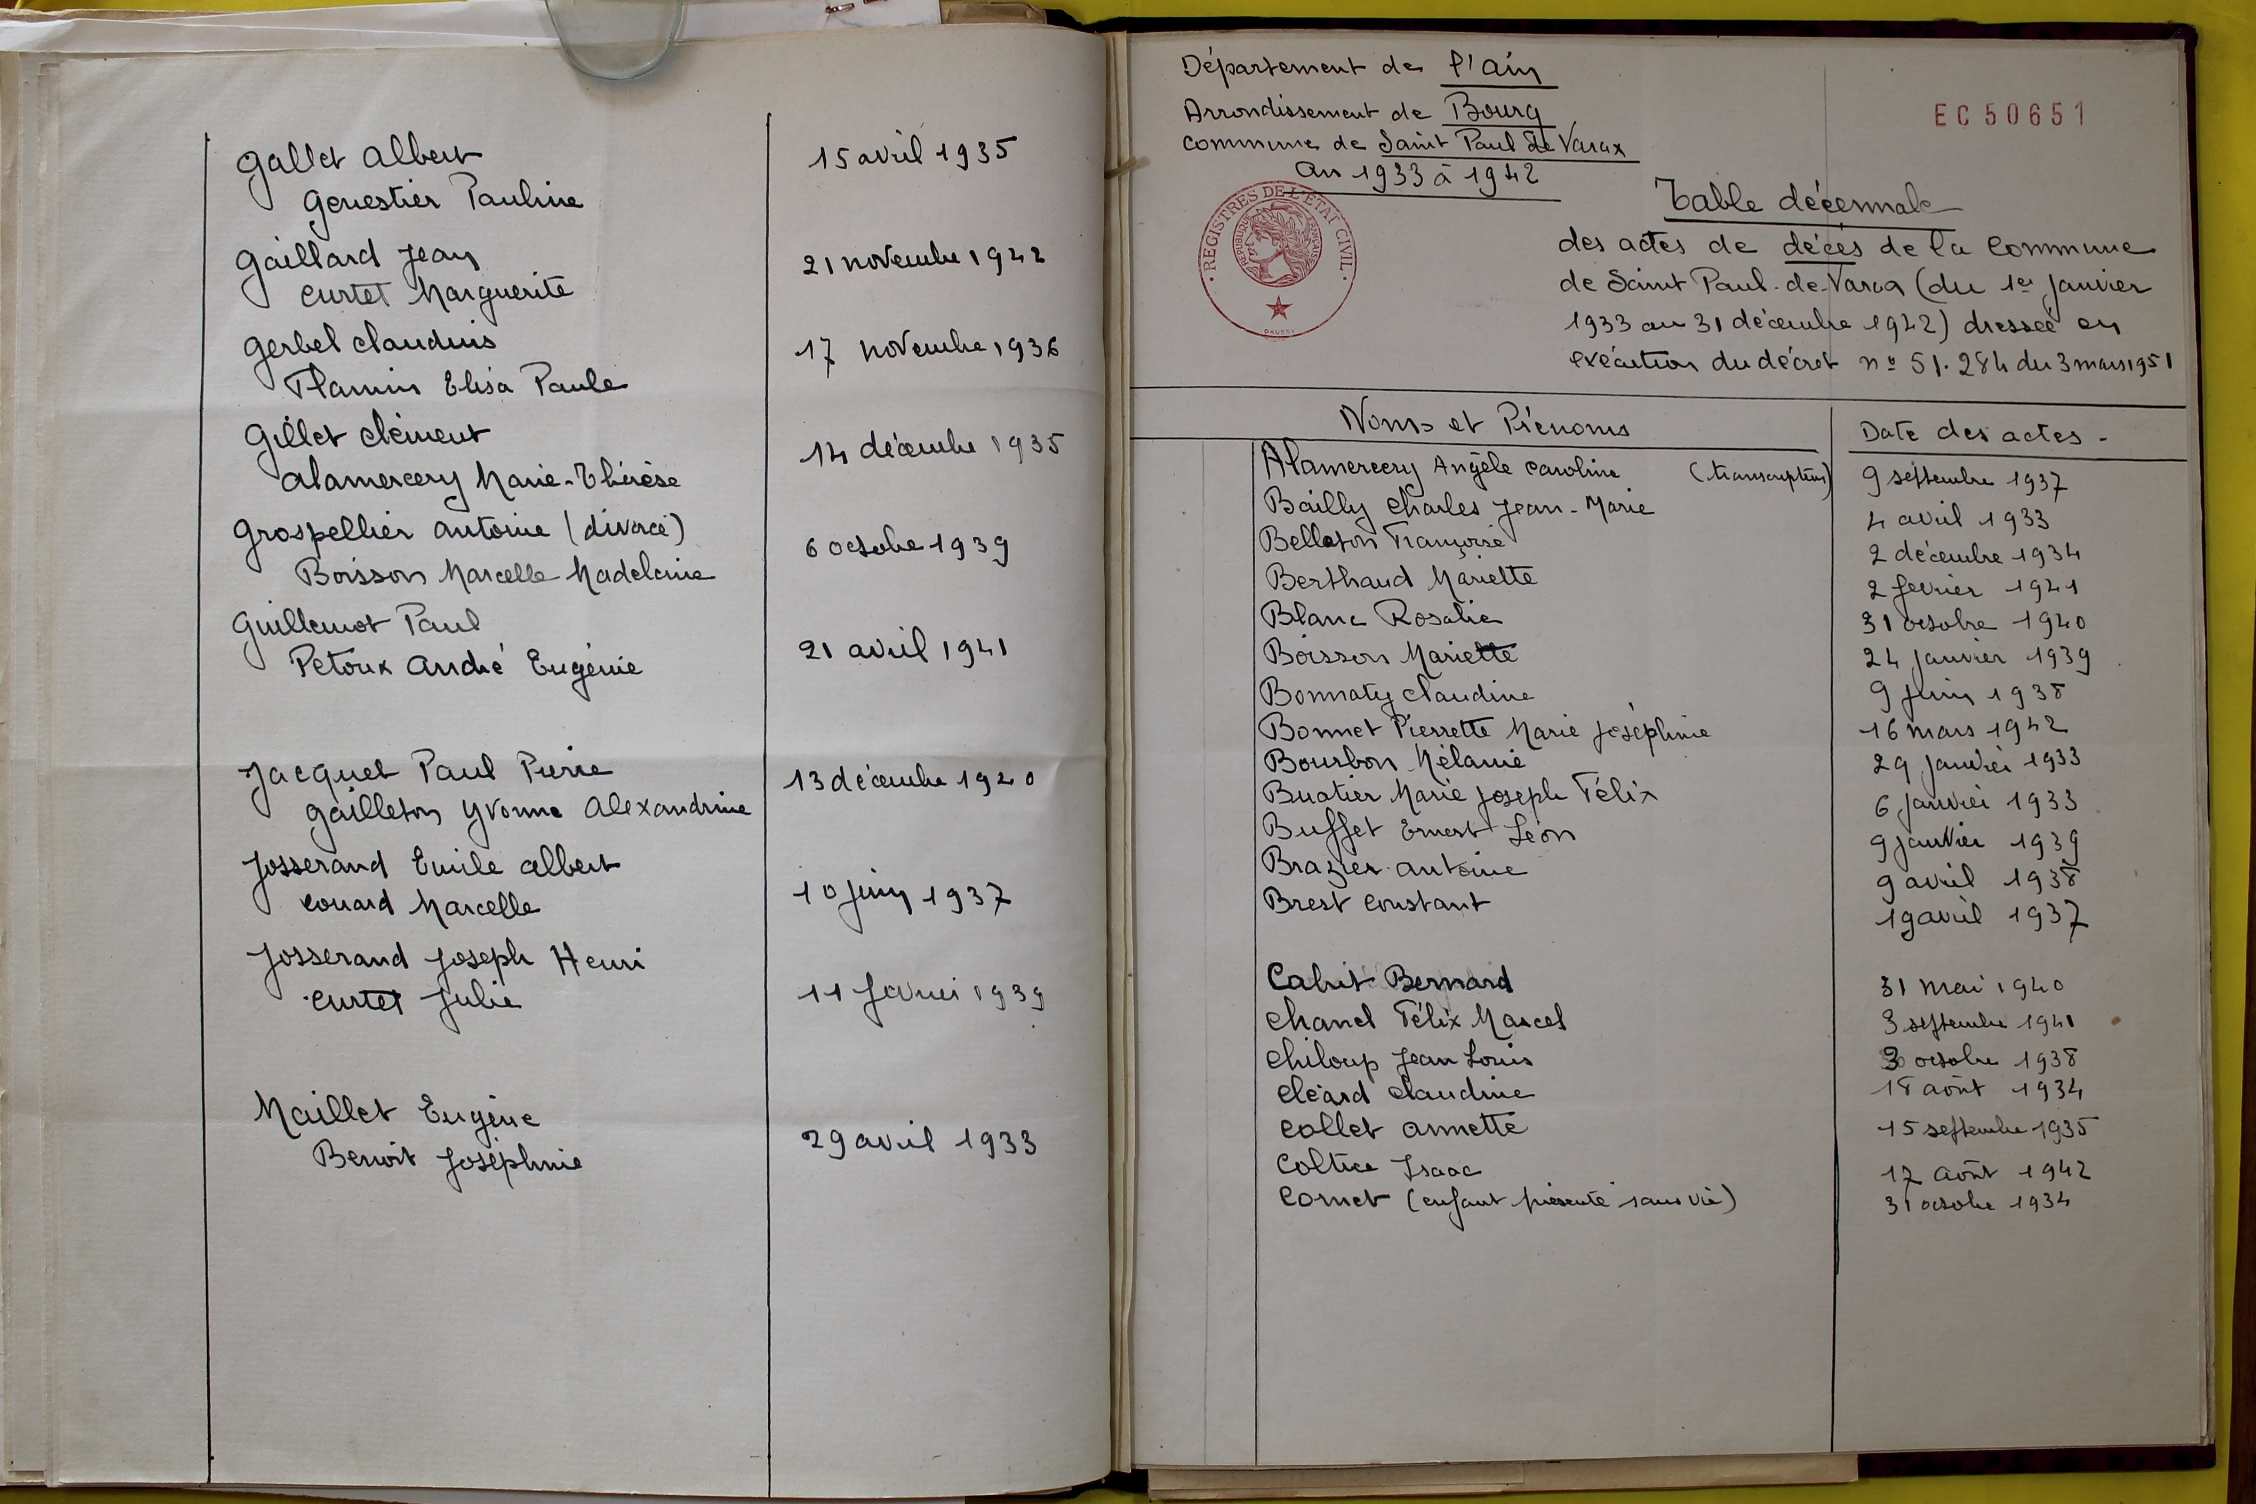 Gallet Albert
Genestier Pauline
15 avril 1935
Gaillard Jean
Curtet Marguerite
21 novembre 1942
Gerbel Claudius
Flamin Elisa Paule
17 novembre 1936
Gillet Clément
Alamercery Marie-Thérèse
14 décembre 1935
Grospellier Antoine (divorcé)
Boisson Marcelle Madeleine
6 octobre 1939
Guillemot Paul
Petoux André Eugénie
21 avril 1941
Jacquet Paul Pierre
Gailleton Yvonne Alexandrine
13 décembre 1940
Josserand Emile Albert
Louard Marcelle
10 juin 1937
Josserand Joseph Henri
Curtet Julie
11 février 1939
Maillet Eugène
Benoit Joséphine
29 avril 1933
Département de l'Ain
Arrondissement de Bourg
Commune de Saint Paul de Varax
An 1933 à 1942
EC 50651
REGISTRES DE L'ETAT CIVIL
REPUBLIQUE FRANÇAISE
Table décennale
des actes de décès de la Commune
de Saint Paul-de-Varax (du 1er Janvier
1933 au 31 décembre 1942) dressée en
exécution du décret nº 51.284 du 3 mars 1951
Noms et Prénoms
Date des actes -
Alamercery Angèle Caroline (transcription) 9 septembre 1937
Bailly Charles Jean-Marie 4 avril 1933
Belleton Françoise 2 décembre 1934
Berthaud Mariette 2 février 1941
Blanc Rosalie 31 octobre 1940
Boisson Mariette 24 janvier 1939
Bonnaty Claudine 9 juin 1938
Bonnet Pierrette Marie Joséphine 16 mars 1942
Bourbon Mélanie 29 janvier 1933
Buatier Marie Joseph Félix 6 janvier 1933
Buffet Ernest Léon 9 janvier 1939
Brazier Antoine 9 avril 1938
Brest Constant 19 avril 1937
Cabrit Bernard 31 mai 1940
Chanel Félix Marcel 3 septembre 1941
Chiloup Jean Louis 3 octobre 1938
Cléard Claudine 18 août 1934
Collet Annette 15 septembre 1935
Coltice Isaac 17 août 1942
Cornet (enfant présenté sans vie) 31 octobre 1934